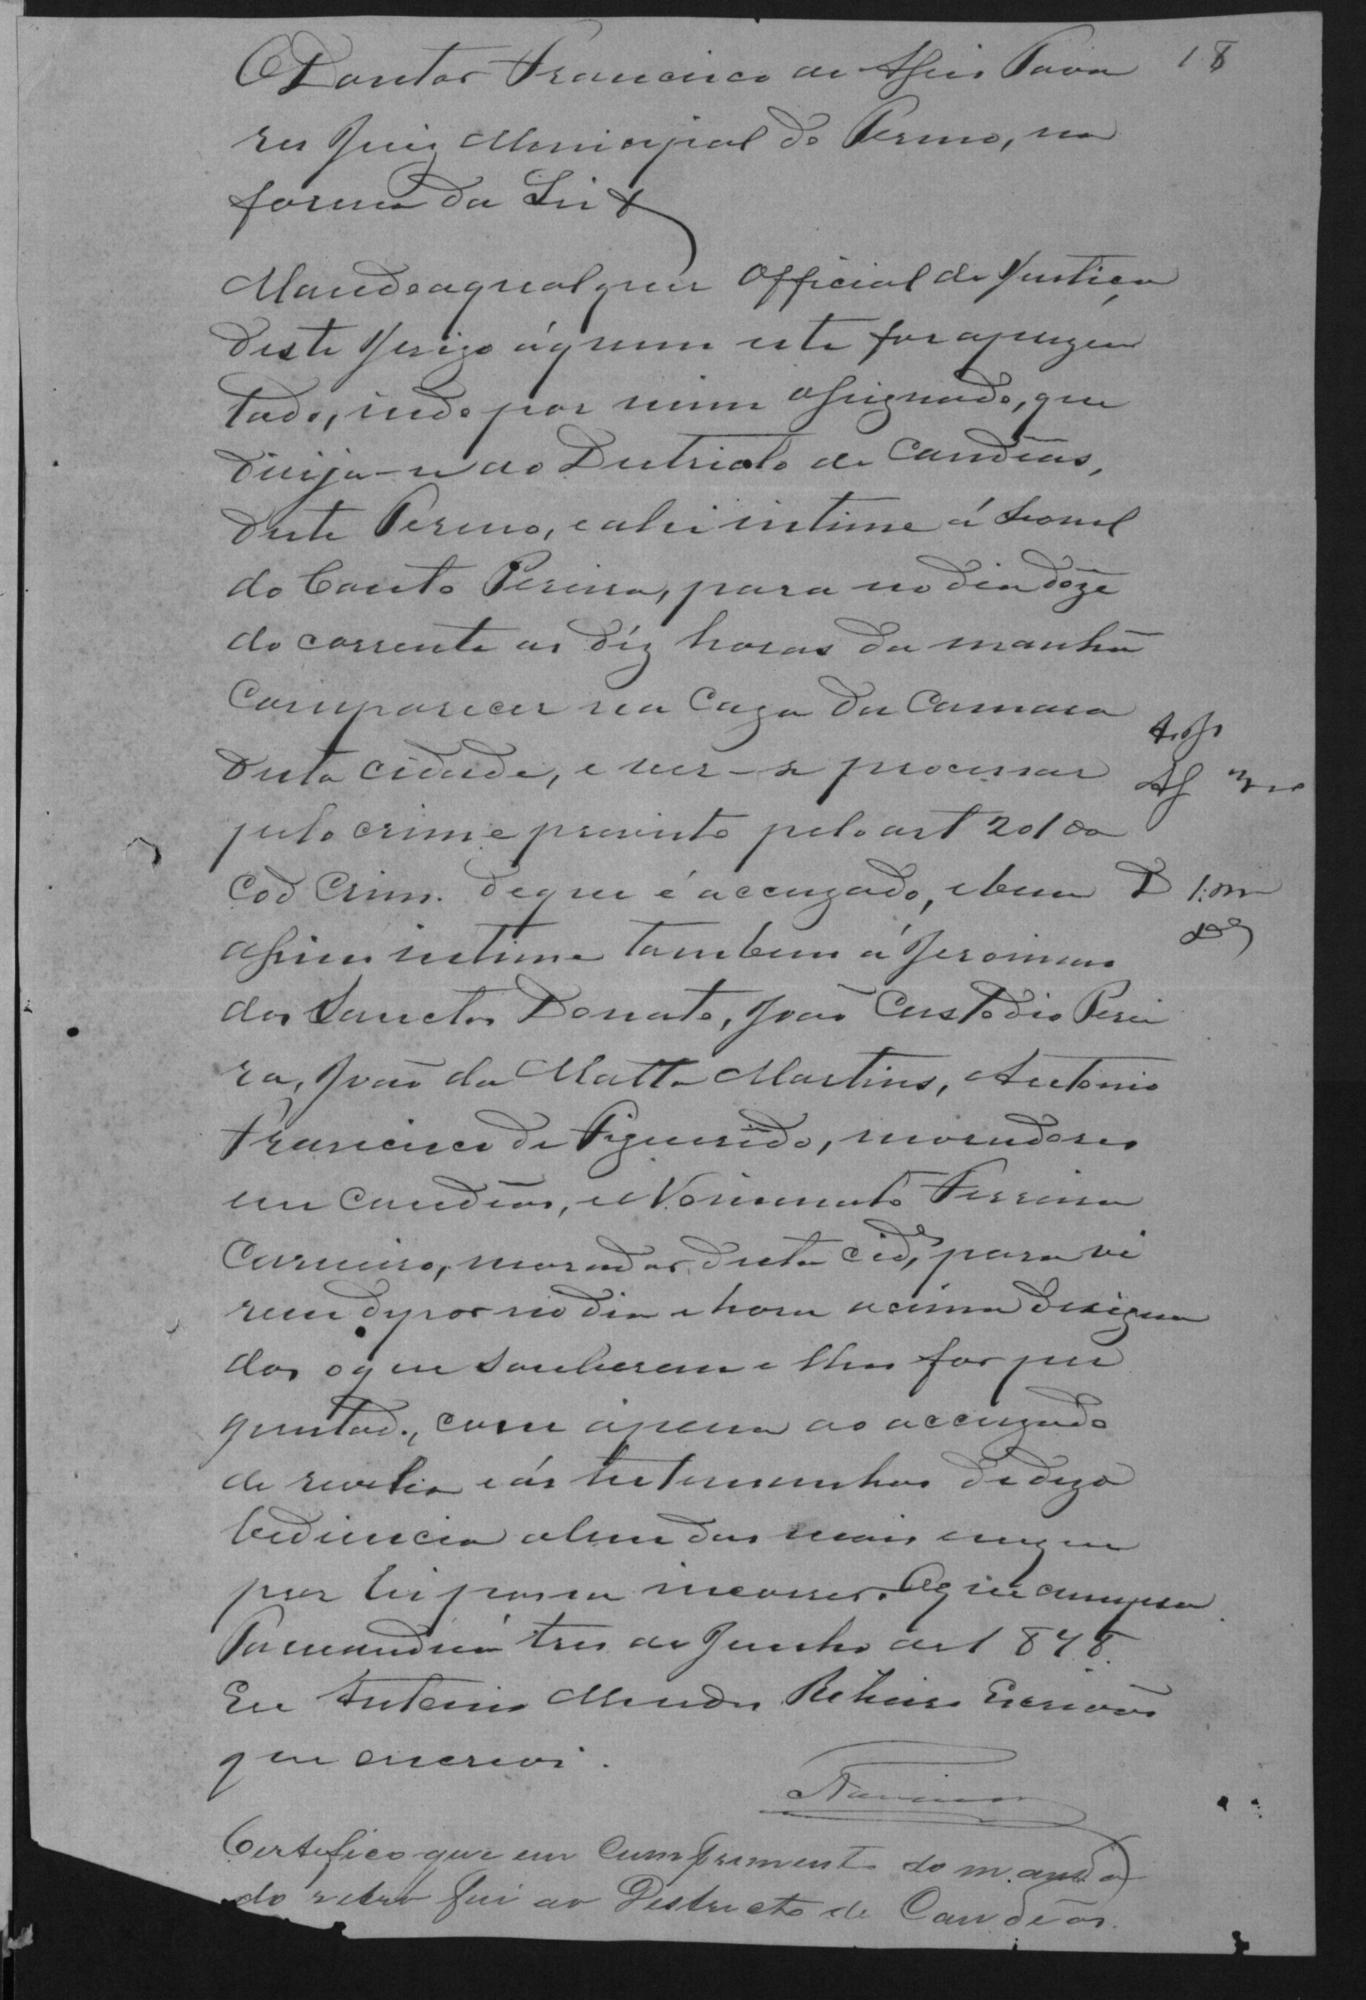 18
O Doutor Francisco de Assis Tava
res Juiz Municipal do Termo, na
forma da Lei &
Mando a qualquer Official de Justiça
deste Juizo á quem este for aprezen
tado, indo por mim assignado, que
dirija-se ao Districto de Candêas,
deste Termo, e ahi intime á Leonel
do Couto Pereira, para no dia doze
do corrente as déz horas da manhã
comparecer na Caza da Camara
desta cidade, e ver-se processar
pelo crime previsto pelo art 201 do
Cod Crim. de que é accuzado, e bem D
assim intime tambem á Jeronimo
dos Sanctos Donato, João Custodio Perei
ra, João da Matta Martins, Antonio
Francisco de Figueirêdo, moradores
em Candêas, e Ferreira
Carneiro, morador desta Cide, para vi
rem depor no dia e hora acima designa
dos o que souberem e lhes for per
guntado, com a pena ao accuzado
de revelia e ás testemunhas de dezo
bediencia alem das mais em que
por lei possa incorrer. O que cumpra.
Tamanduá tres de Junho de 1878.
Eu Antonio Mendes Ribeiro Escrivão
que escrevi.
Tavares
Certefico que em Cumprimento do manda
do retro fui ao Destrecto de Candêas.